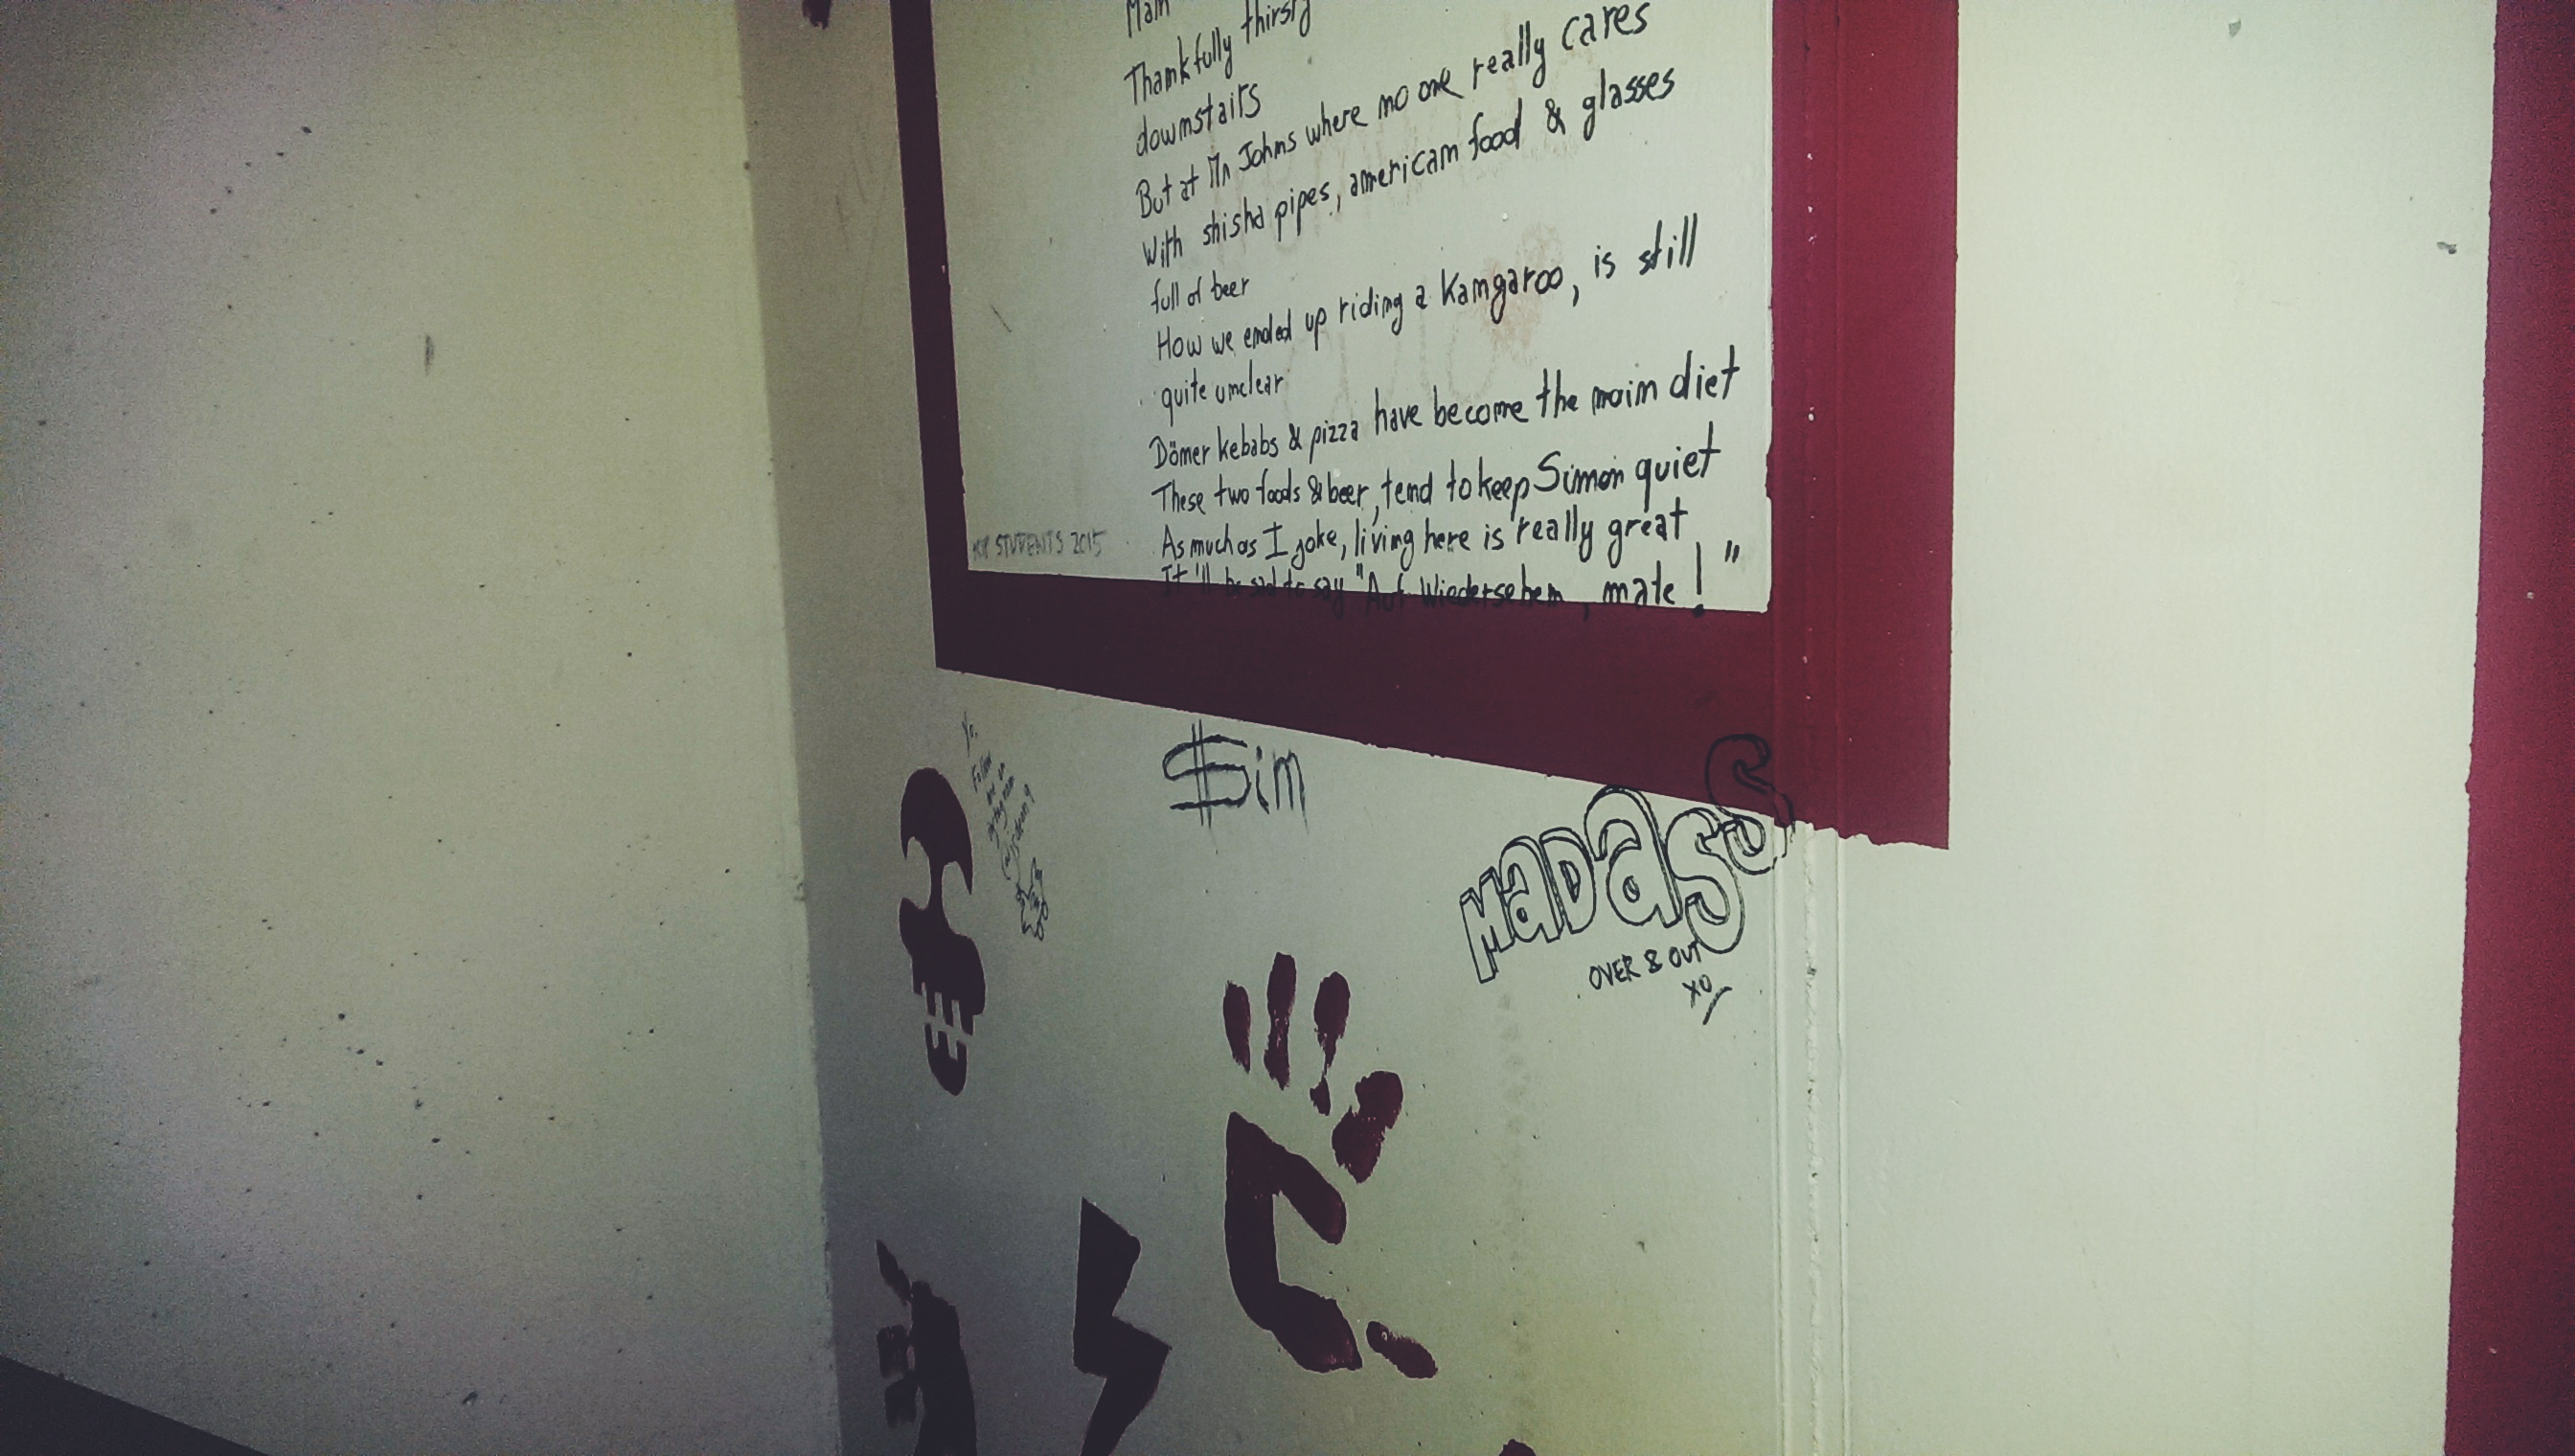 Main
Thankfully thirsty
downstairs
But at Mr Johns where no one really cares
With shisha pipes, american food & glasses
full of beer
How we ended up riding a Kangaroo, is still
quite unclear
Döner kebabs & pizza have become the main diet
These two foods & beer, tend to keep Simon quiet
As much as I joke, living here is really great
It'll be sad to say "Auf Wiedersehen, mate!"
STUDENTS 2015
Yo,
Follow
me on
$im
MaDasS
OVER & OUT
XO